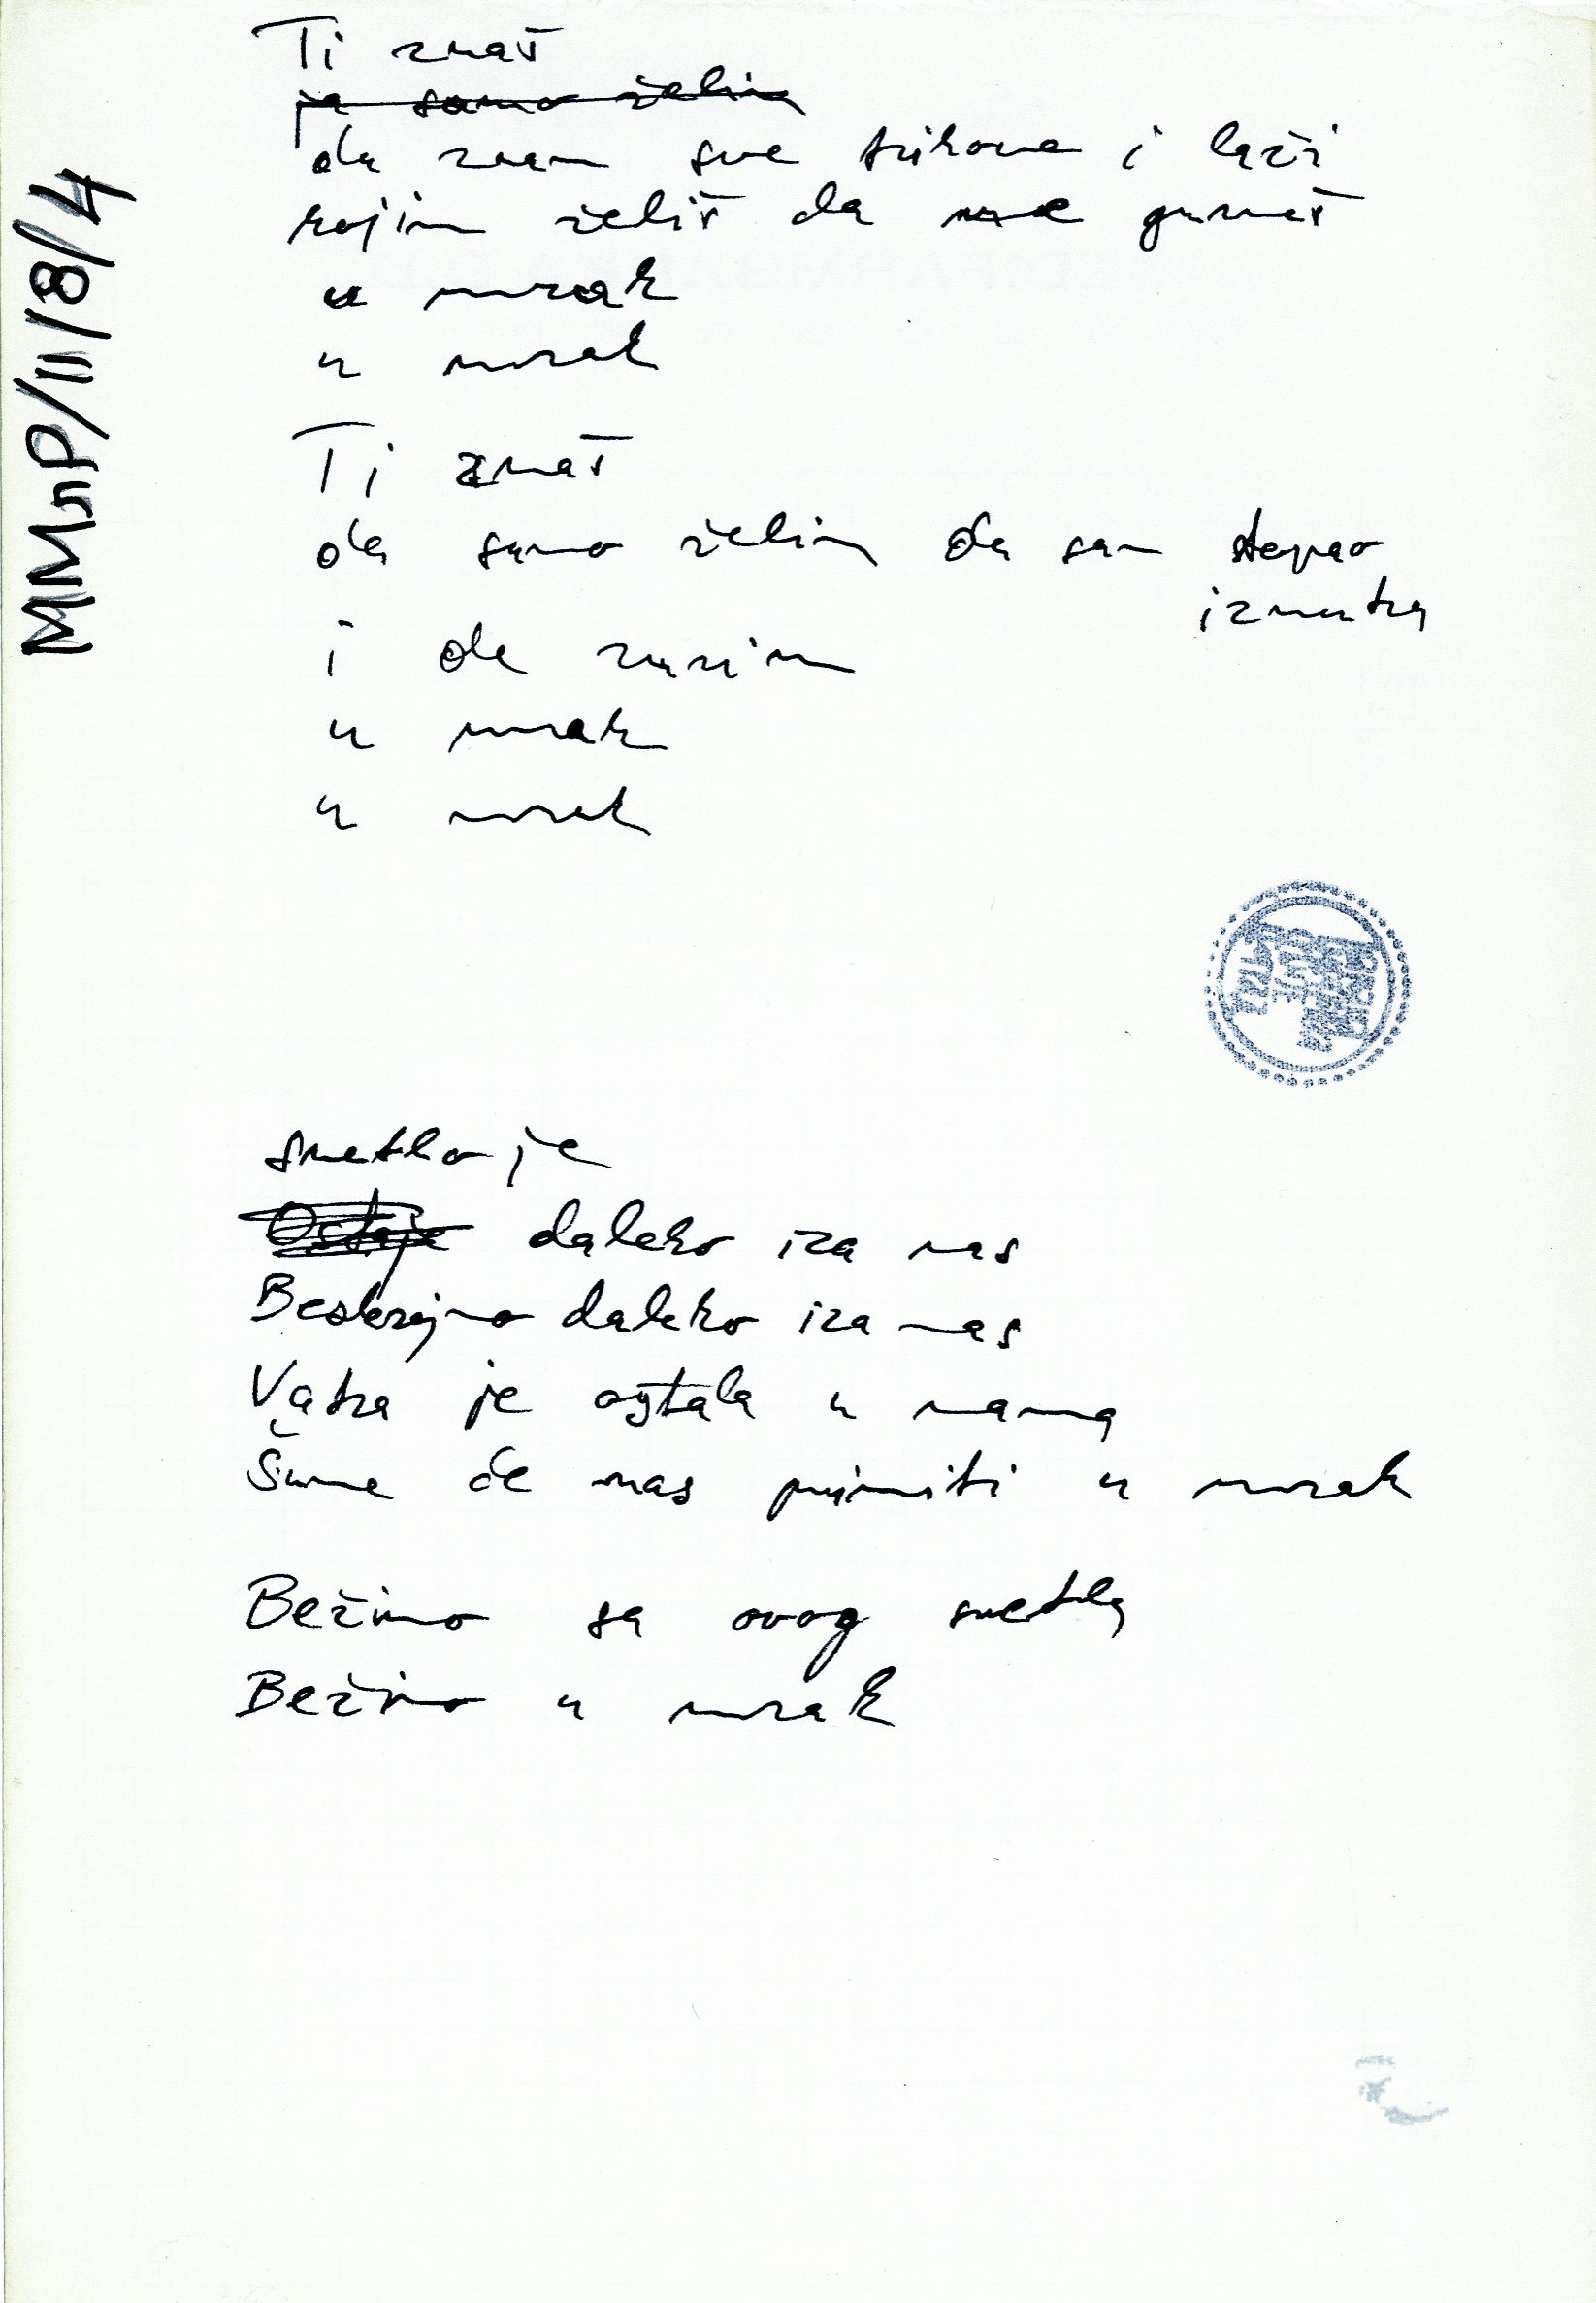 Ti znaš
ja samo želim
da znam sve trikove i laži
kojim želiš da me gurneš
u mrak
u mrak
Ti znaš
da samo želim da sam stepao
iznutra
i da zurim
u mrak
u mrak
svetlo je
Ostaje daleko iza nas
Beskrajno daleko iza nas
Vatra je ostala u nama
Šume će nas primiti u mrak
Bežimo sa ovog svetla
Bežimo u mrak
MMnP/II/8/4